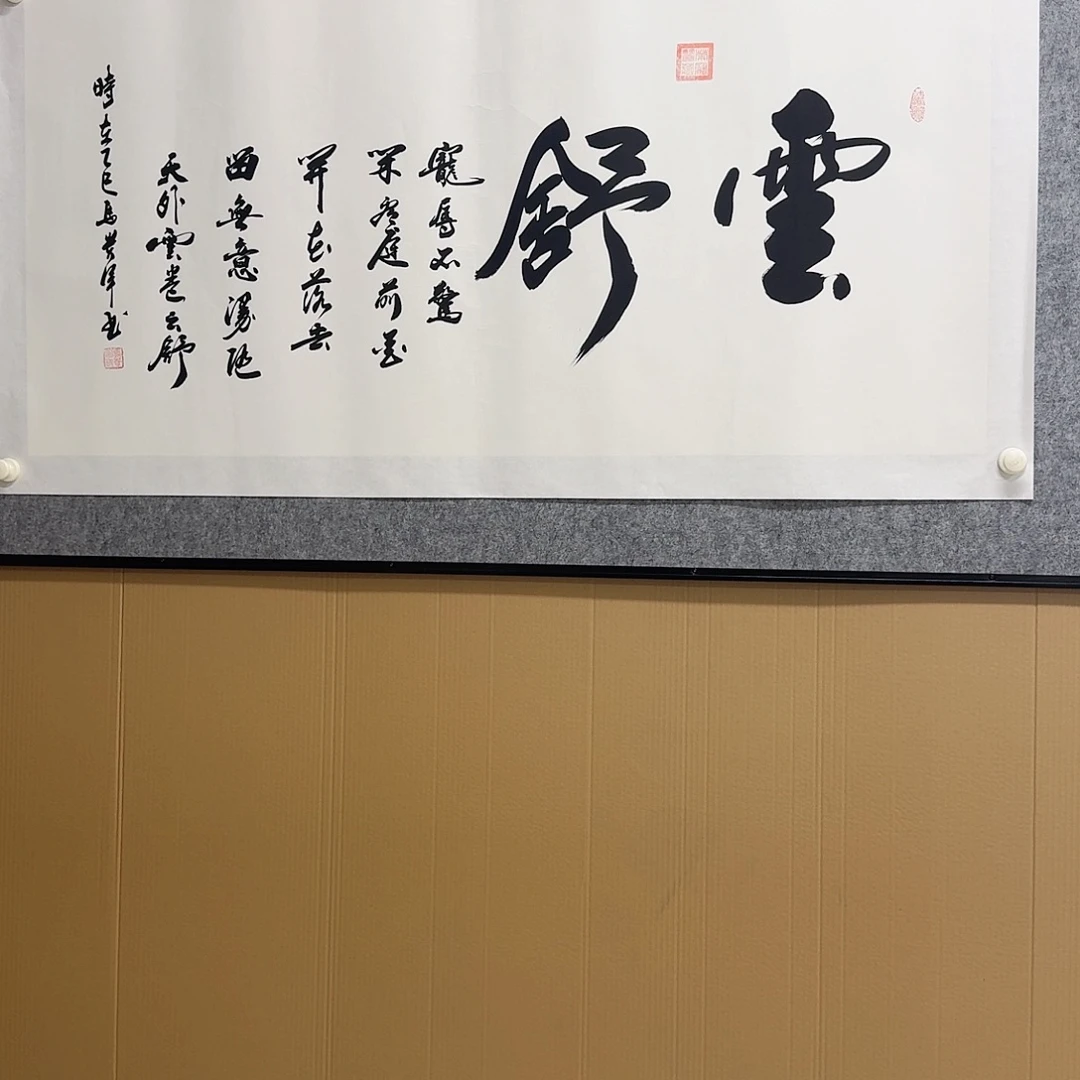 雲舒
寵辱不驚
閑看庭前花
開花落去
留無意漫随
天外雲卷云舒
時在乙巳